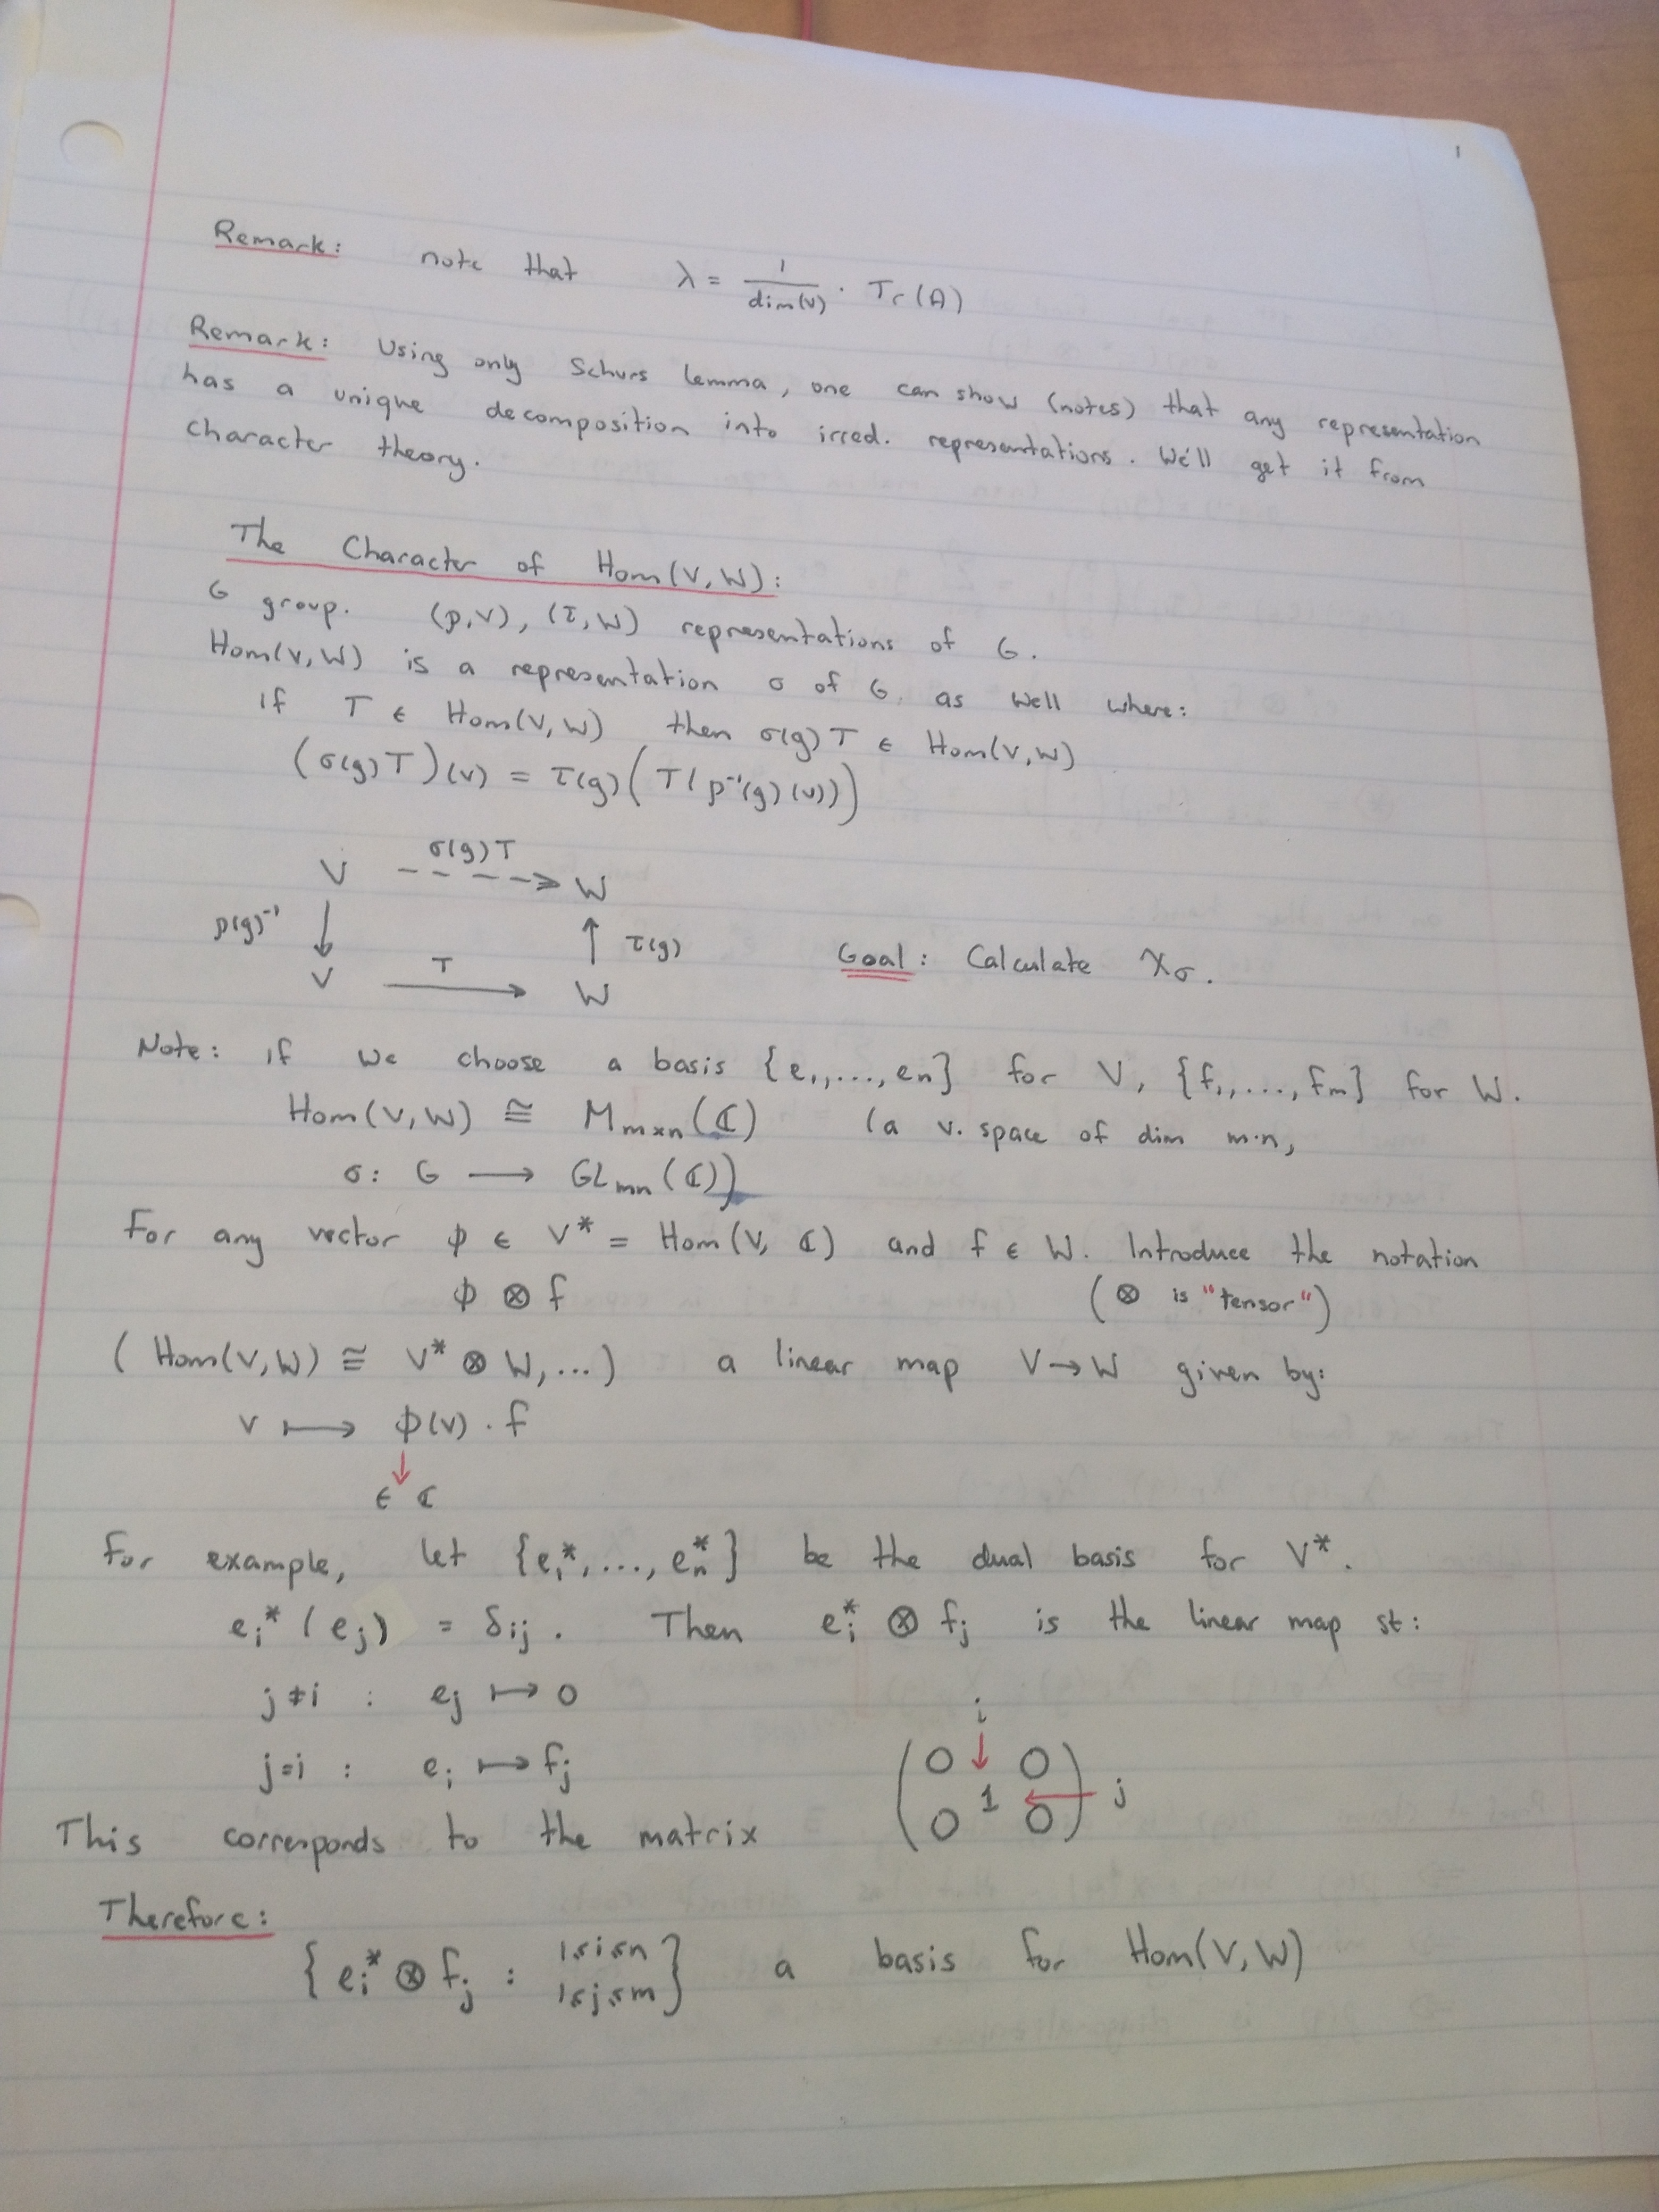 1
Remark: note that λ = 1/dim(V) · Tr(A)
Remark: Using only Schurs lemma, one can show (notes) that any representation
has a unique decomposition into irred. representations. We'll get it from
character theory.
The Character of Hom(V,W):
G group. (ρ,V), (τ,W) representations of G.
Hom(V,W) is a representation σ of G as well where:
if T ∈ Hom(V,W) then σ(g)T ∈ Hom(V,W)
(σ(g)T)(v) = τ(g)(T(ρ⁻¹(g)(v)))
V σ(g)T ⇢ W
ρ(g)⁻¹ ↓ ↑ τ(g)
V T → W
Goal: Calculate χσ.
Note: if we choose a basis {e₁,...,eₙ} for V, {f₁,...,fₘ} for W.
Hom(V,W) ≅ Mₘₓₙ(ℂ) (a v. space of dim m·n,
σ: G ⟶ GLₘₙ(ℂ))
For any vector ϕ ∈ V* = Hom(V, ℂ) and f ∈ W. Introduce the notation
ϕ ⊗ f (⊗ is "tensor")
(Hom(V,W) ≅ V* ⊗ W,...) a linear map V→W given by:
v ⟼ ϕ(v) · f
↓
∈ ℂ
For example, let {e₁*,...,eₙ*} be the dual basis for V*.
eᵢ*(eⱼ) = δᵢⱼ. Then eᵢ* ⊗ fⱼ is the linear map st:
j≠i : eⱼ ⟼ 0
j=i : eᵢ ⟼ fⱼ
i
↓
This corresponds to the matrix (0 0 1 0 0) ← j
Therefore:
{eᵢ* ⊗ fⱼ : 1≤i≤n 1≤j≤m} a basis for Hom(V,W)